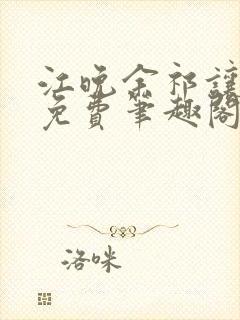 江晚余祁让
免费笔趣阁
洛咪